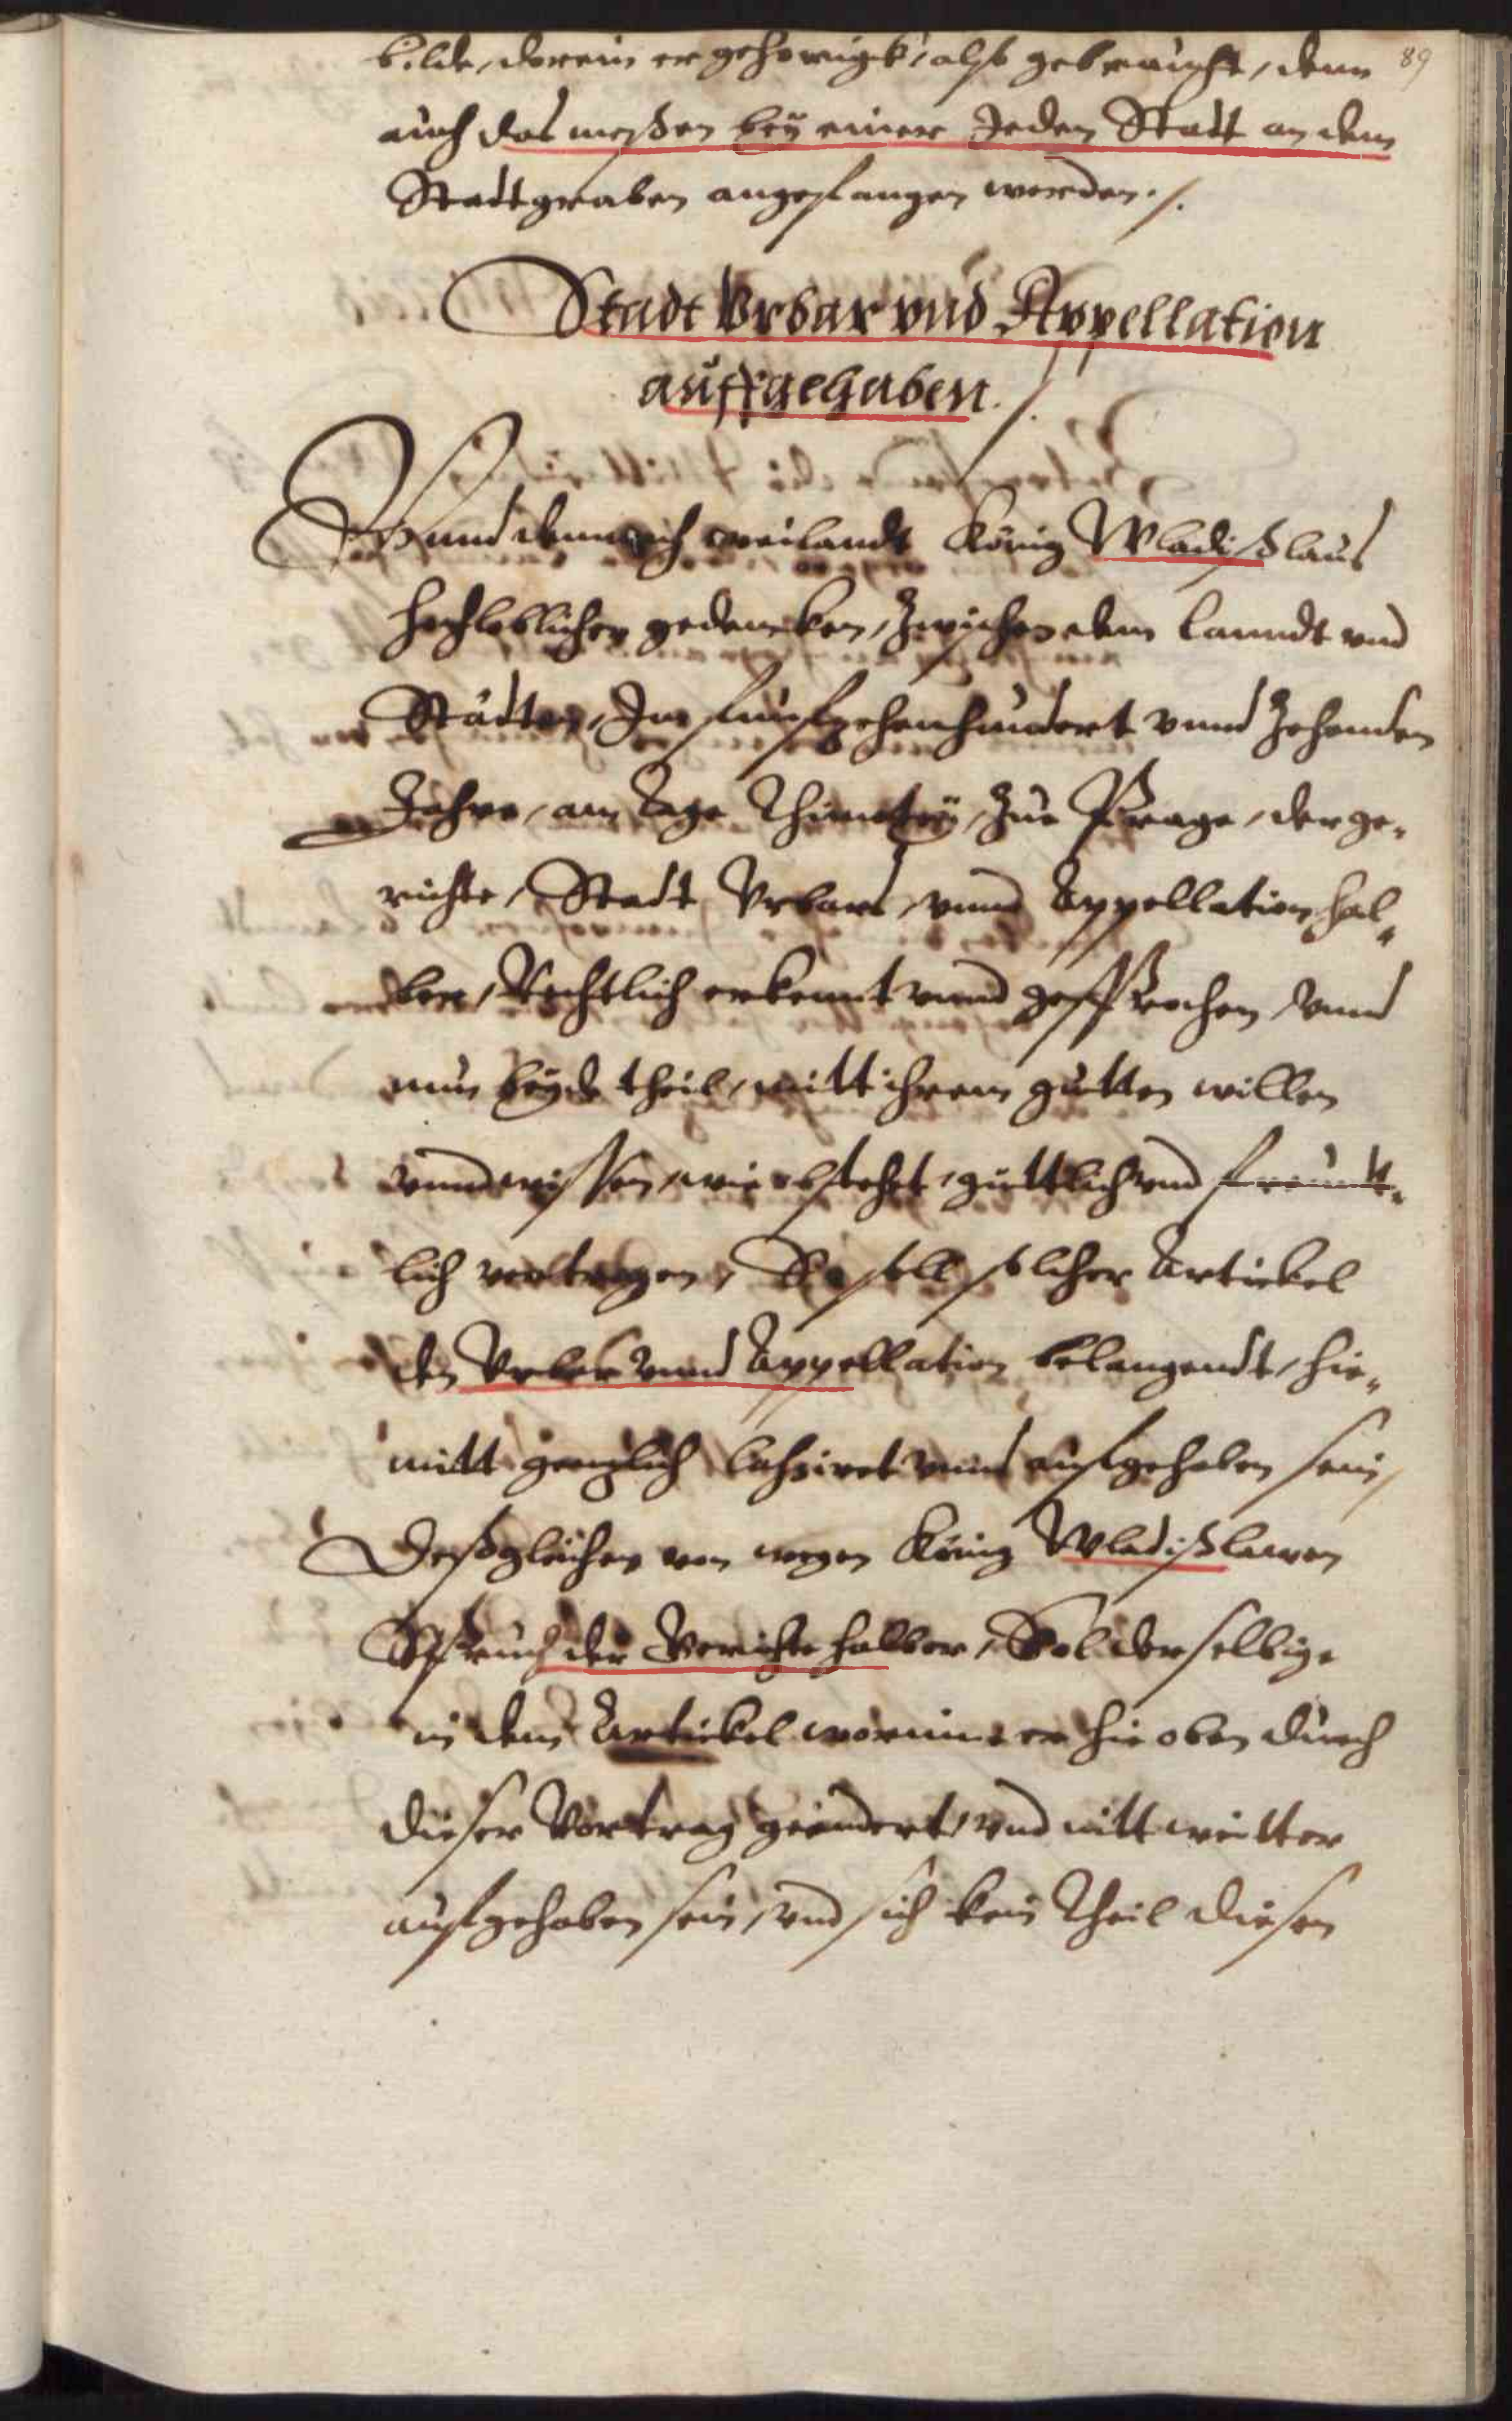 bilde, dorein er gehorigk, alß gebraucht, denn 89
auch das meßen bey einer Jeden Stadt an dem
Stadtgraben angefangen werden ./.
Stadt Vrbar vnd Appellation
auffgehaben ./.
Vnnd demnach weilandt König Wladißlaus
hochloblicher gedencken, Zwischen dem Lanndt vnd
Städten, Im funfzehenhundert vnnd Zehenden
Jahre, am Tage Thimotej, Zue Prage, der ge„
richte, Stadt Vrbars, vnnd Appellation hal„
ben, Rechtlich erkennt vnnd gesprochen, vnnd
nun beyde theil, mitt ihrem gutten willen
vnnd wissen, wie obstehet, guttlich vnd freundt„
lich vertragen, So soll solcher Artickel
den Vrbar vnnd Appellation belangendt, hie„
mitt genzlich Caßiret vnnd aufgehaben sein,
Deßgleichen von wegen König Wladißlawen
Spruch der Gerichte halber, Sol derselbige
in dem Artickel worinne er hie oben durch
dieser Vortrag geendert, vnd nitt weitter
aufgehaben sein, vnd sich kein Theil diesen